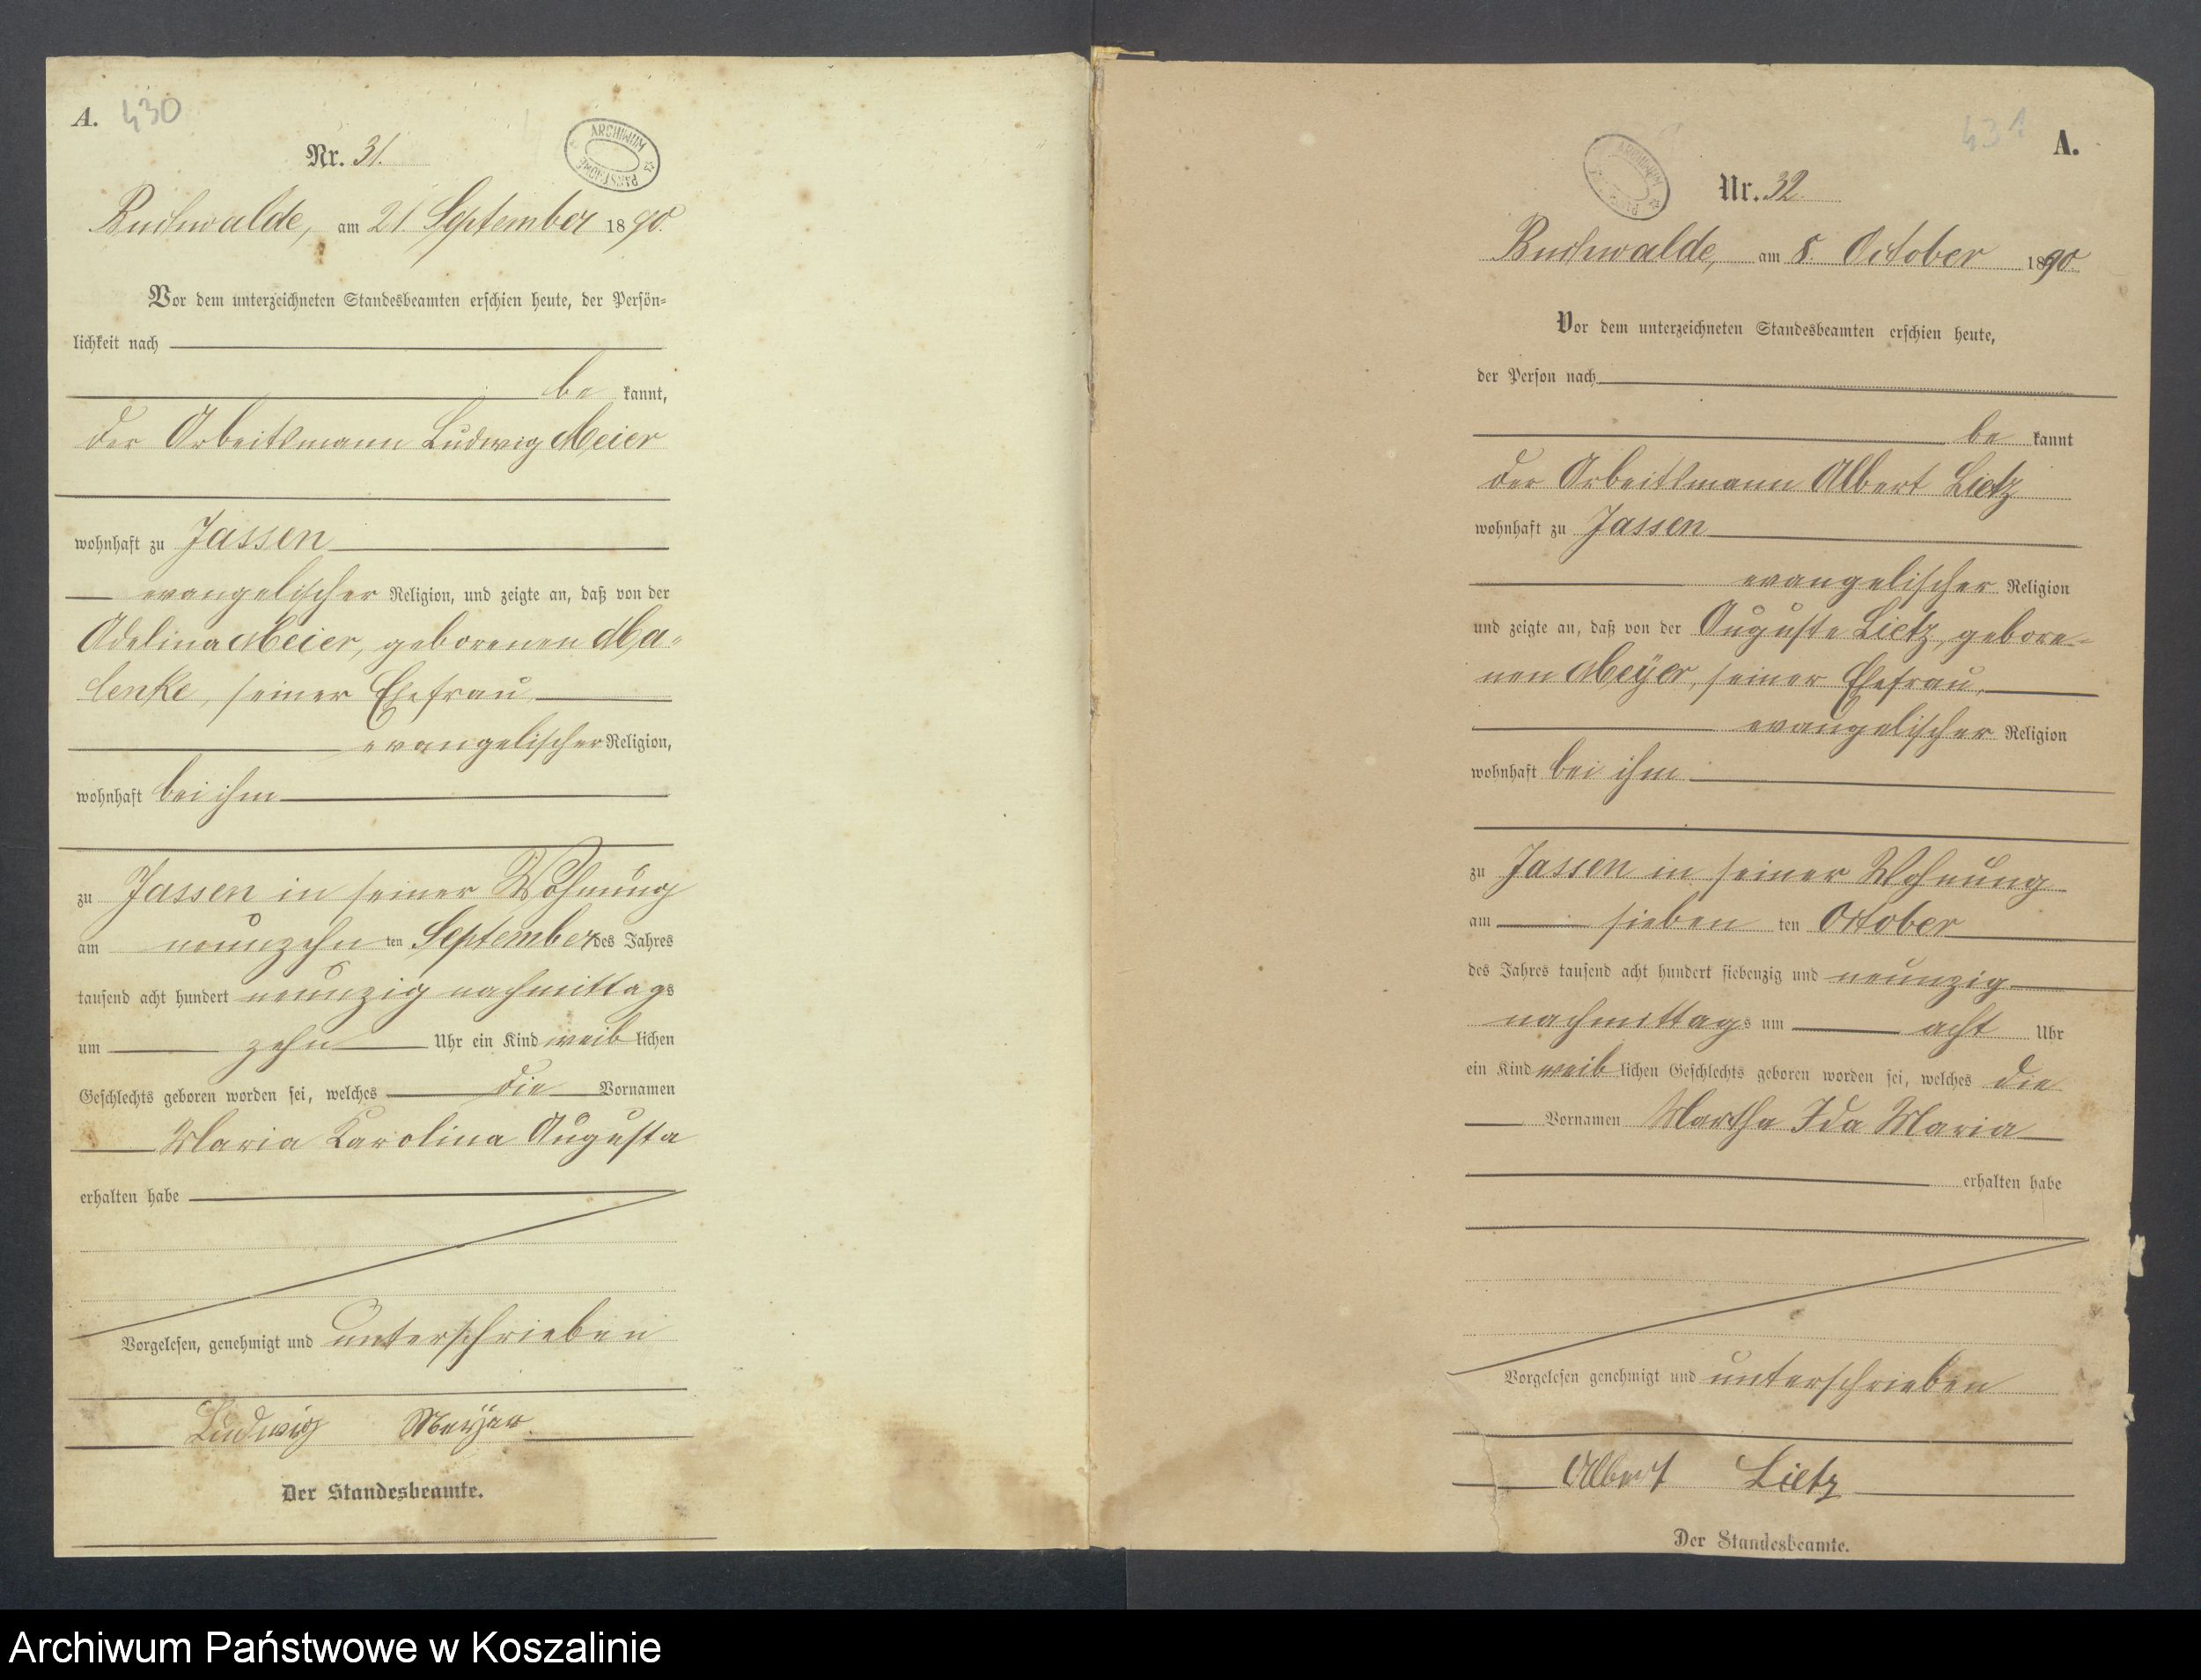 A. 430
ARCHIWUM PAŃSTWOWE
Nr. 31.
Buchwalde, am 21 September 1890.
Vor dem unterzeichneten Standesbeamten erschien heute, der Persön-
lichkeit nach
be kannt,
der Arbeitsmann Ludwig Meier
wohnhaft zu Jassen
evangelischer Religion, und zeigte an, daß von der
Adelina Meier, geborenen Ma-
lenke, seiner Ehefrau
evangelischer Religion,
wohnhaft bei ihm
zu Jassen in seiner Wohnung
am neunzehn ten September des Jahres
tausend acht hundert neunzig nachmittags
um zehn Uhr ein Kind weib lichen
Geschlechts geboren worden sei, welches die Vornamen
Maria Karolina Augusta
erhalten habe
Vorgelesen, genehmigt und unterschrieben
Ludwig Meÿer.
Der Standesbeamte.
431 A.
ARCHIWUM
Nr. 32.
Buchwalde, am 8. October 1890.
Vor dem unterzeichneten Standesbeamten erschien heute,
der Person nach
be kannt
der Arbeitsmann Albert Lietz
wohnhaft zu Jassen
evangelischer Religion
und zeigte an, daß von der Auguste Lietz, gebore-
nen Meÿer, seiner Ehefrau,
evangelischer Religion
wohnhaft bei ihm
zu Jassen in seiner Wohnung
am sieben ten October
des Jahres tausend acht hundert siebenzig und neunzig
nachmittags um acht Uhr
ein Kind weib lichen Geschlechts geboren worden sei, welches die
Vornamen Martha Ida Maria
erhalten habe
Vorgelesen genehmigt und unterschrieben
Albert Lietz
Der Standesbeamte.
Archiwum Państwowe w Koszalinie